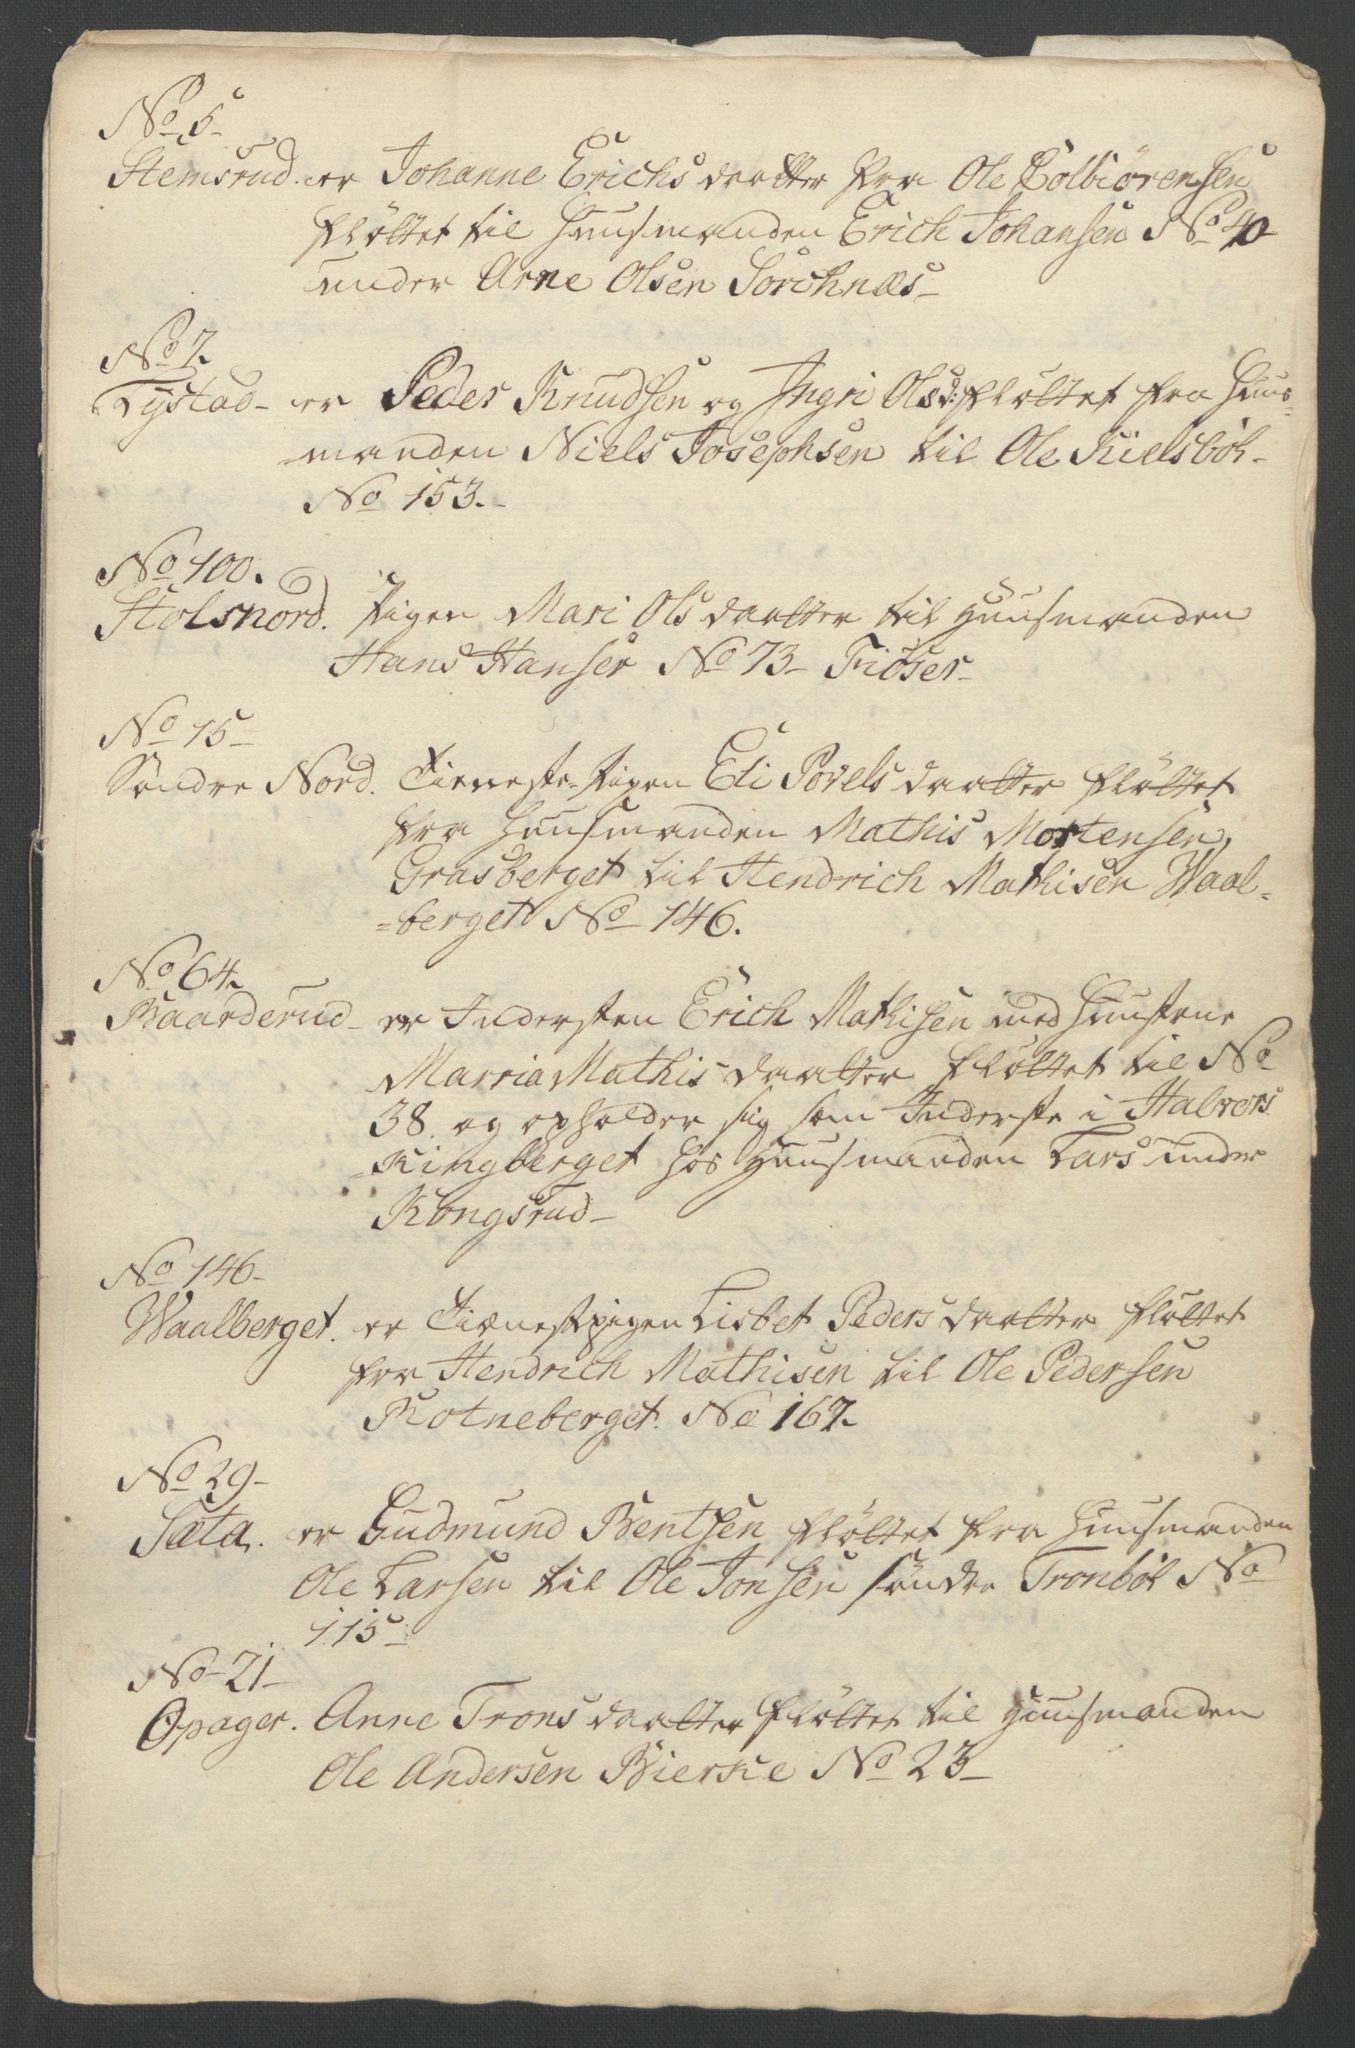 No 5
Stemsrud. er Johanne Erichsdaatter fra Ole Colbiørensen
fløttet til Huusmanden Erich Johansen No 40
under Arne Olsen Sorchnæs
No 7.
Lystad er Peder Knudsen og Ingri Olsd: fløttet fra Huus-
manden Niels Josephsen til Ole Kielsbøl
No 153.
No 100.
Stolsnord. Pigen Mari Olsdaatter til Huusmanden
Hans Hanser No 73 Fiøser
No 15
Søndre Nord. Tieneste-Pigen Eli Povelsdaatter fløttet
fra Huusmanden Mathis Mortensen
Grasberget til Hendrich Mathisen Waal-
berget No 146.
No 64.
Baarderud er Indersten Erich Mathisen med Huustrue
Marria Mathisdaatter fløttet til No
38 og opholder sig som Inderste i Halvors
Kingberget hos Huusmanden Lars under
Kongsrud
No 146
Waalberget. er Tienestpigen Lisbet Pedersdaatter fløttet
fra Hendrich Mathisen til Ole Pedersen
Kotneberget. No 167.
No 29
Sæta. er Gudmund Bentsen fløttet fra Huusmanden
Ole Larsen til Ole Jonsen søndre Tronbøl No
115
No 21
Opager. Anne Tronsdaatter fløttet til Huusmanden
Ole Andersen Bierke No 23